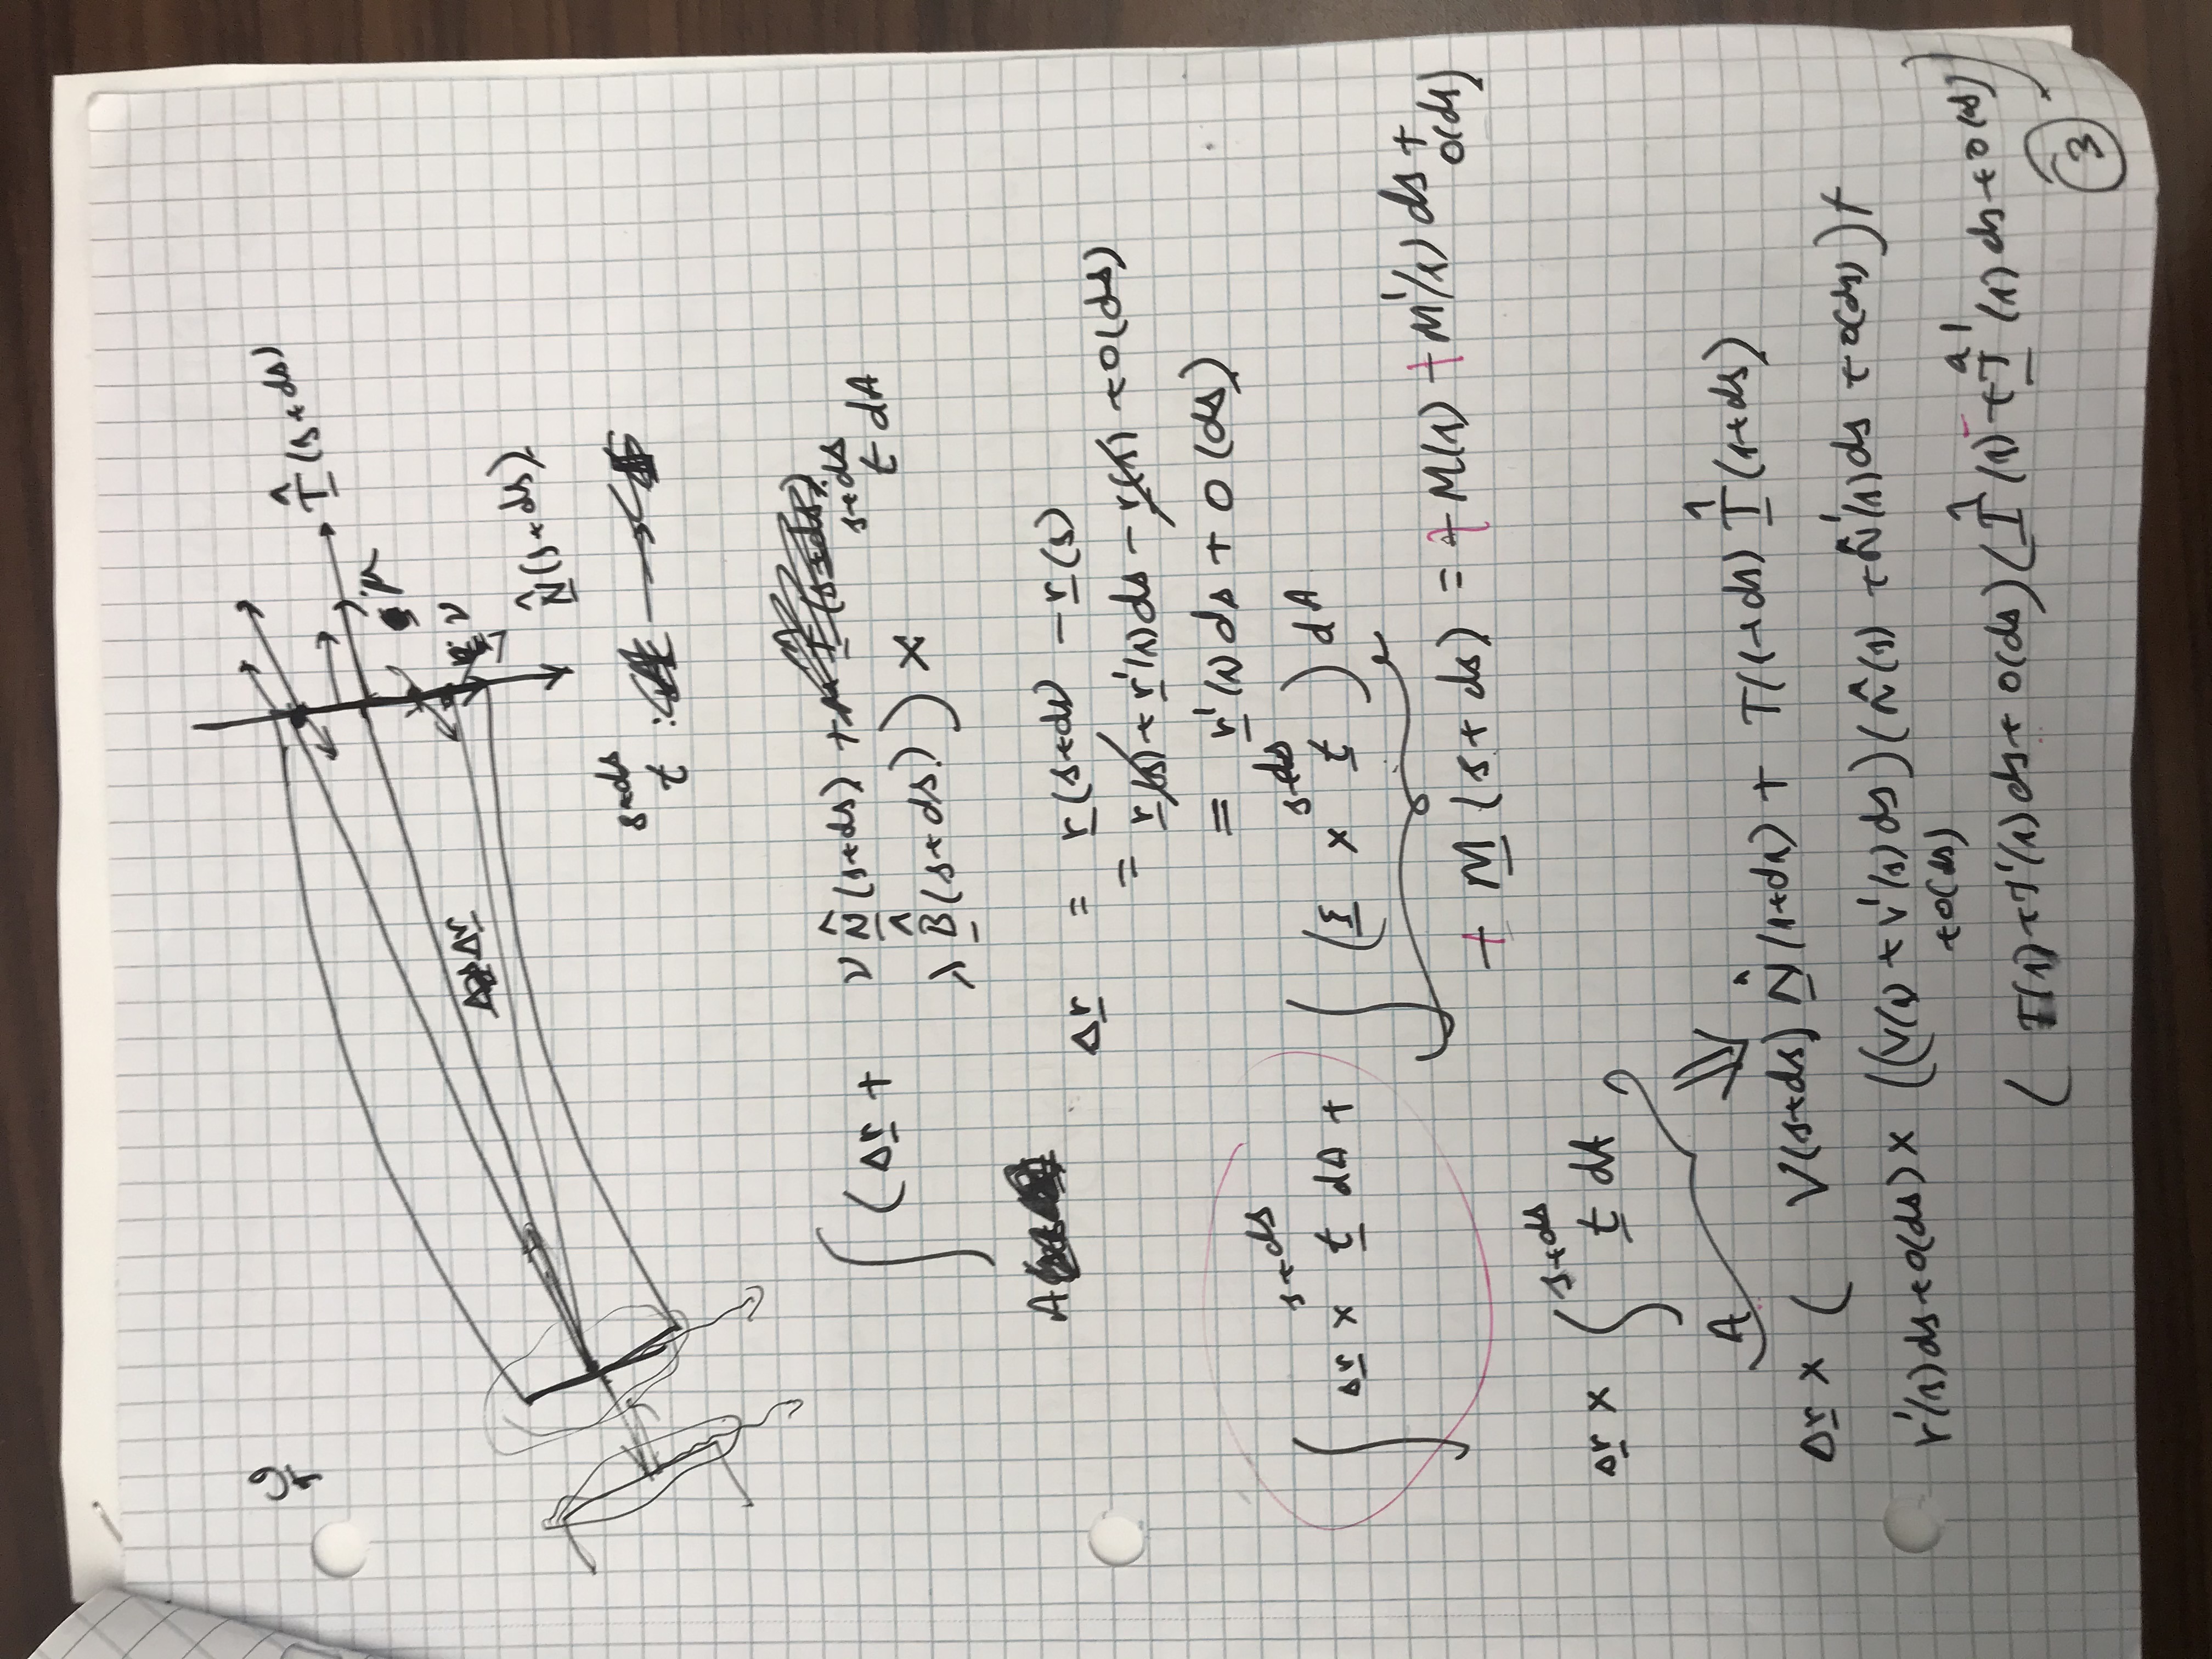 T̂(s+ds)
μ
Δr
ν
N̂(s+ds)
s+ds
t : →
∫ (Δr + ν N̂(s+ds) +
λ B̂(s+ds)) × s+ds t dA
A
Δr = r(s+ds) - r(s)
= r(s) + r'(s)ds - r(s) + o(ds)
= r'(s)ds + o(ds)
∫ Δr × s+ds t dA + ∫ (ξ × s+ds t) dA
+ M(s+ds) = + M(s) + M'(s)ds + o(ds)
Δr × ∫ s+ds t dA
A
⇓
Δr × ( V(s+ds) N̂(s+ds) + T(s+ds) T̂(s+ds)
r'(s)ds + o(ds) × ((V(s) + V'(s)ds)(N̂(s) + N̂'(s)ds + o(ds)) +
+ o(ds)
( T(s) + T'(s)ds + o(ds))(T̂(s) + T̂'(s)ds + o(ds))
3